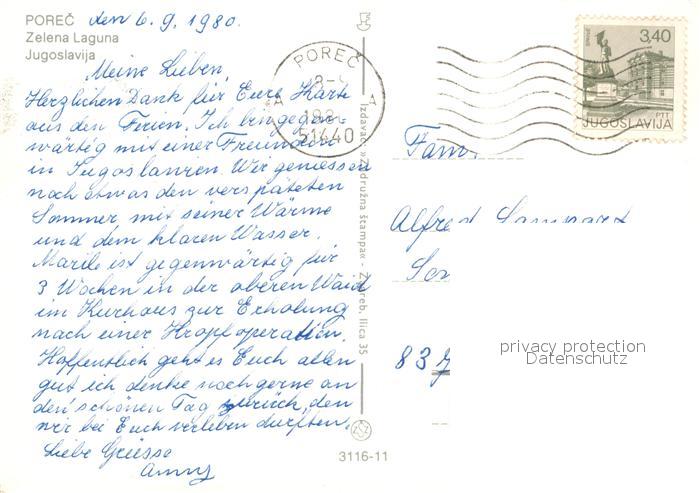 POREČ den 6.9.1980.
Zelena Laguna
Jugoslavija
Meine Lieben,
Herzlichen Dank für Eure Karte
aus den Ferien. Ich bin gegen-
wärtig mit einer Freundin
in Jugoslavien. Wir geniessen
noch etwas den verspäteten
Sommer mit seiner Wärme
und dem klaren Wasser.
Marile ist gegenwärtig für
3 Wochen in der oberen Waid
im Kurhaus zur Erholung
nach einer Kropfoperation.
Hoffentlich geht es Euch allen
gut ich denke noch gerne an
den schönen Tag zurück, den
wir bei Euch verleben durften.
Liebe Grüsse
Anny
POREČ
51440
Izdavač: zadružna štampa - Zagreb, Ilica 35
3116-11
3,40
PTT
JUGOSLAVIJA
Fam.
Alfred
837
privacy protection
Datenschutz